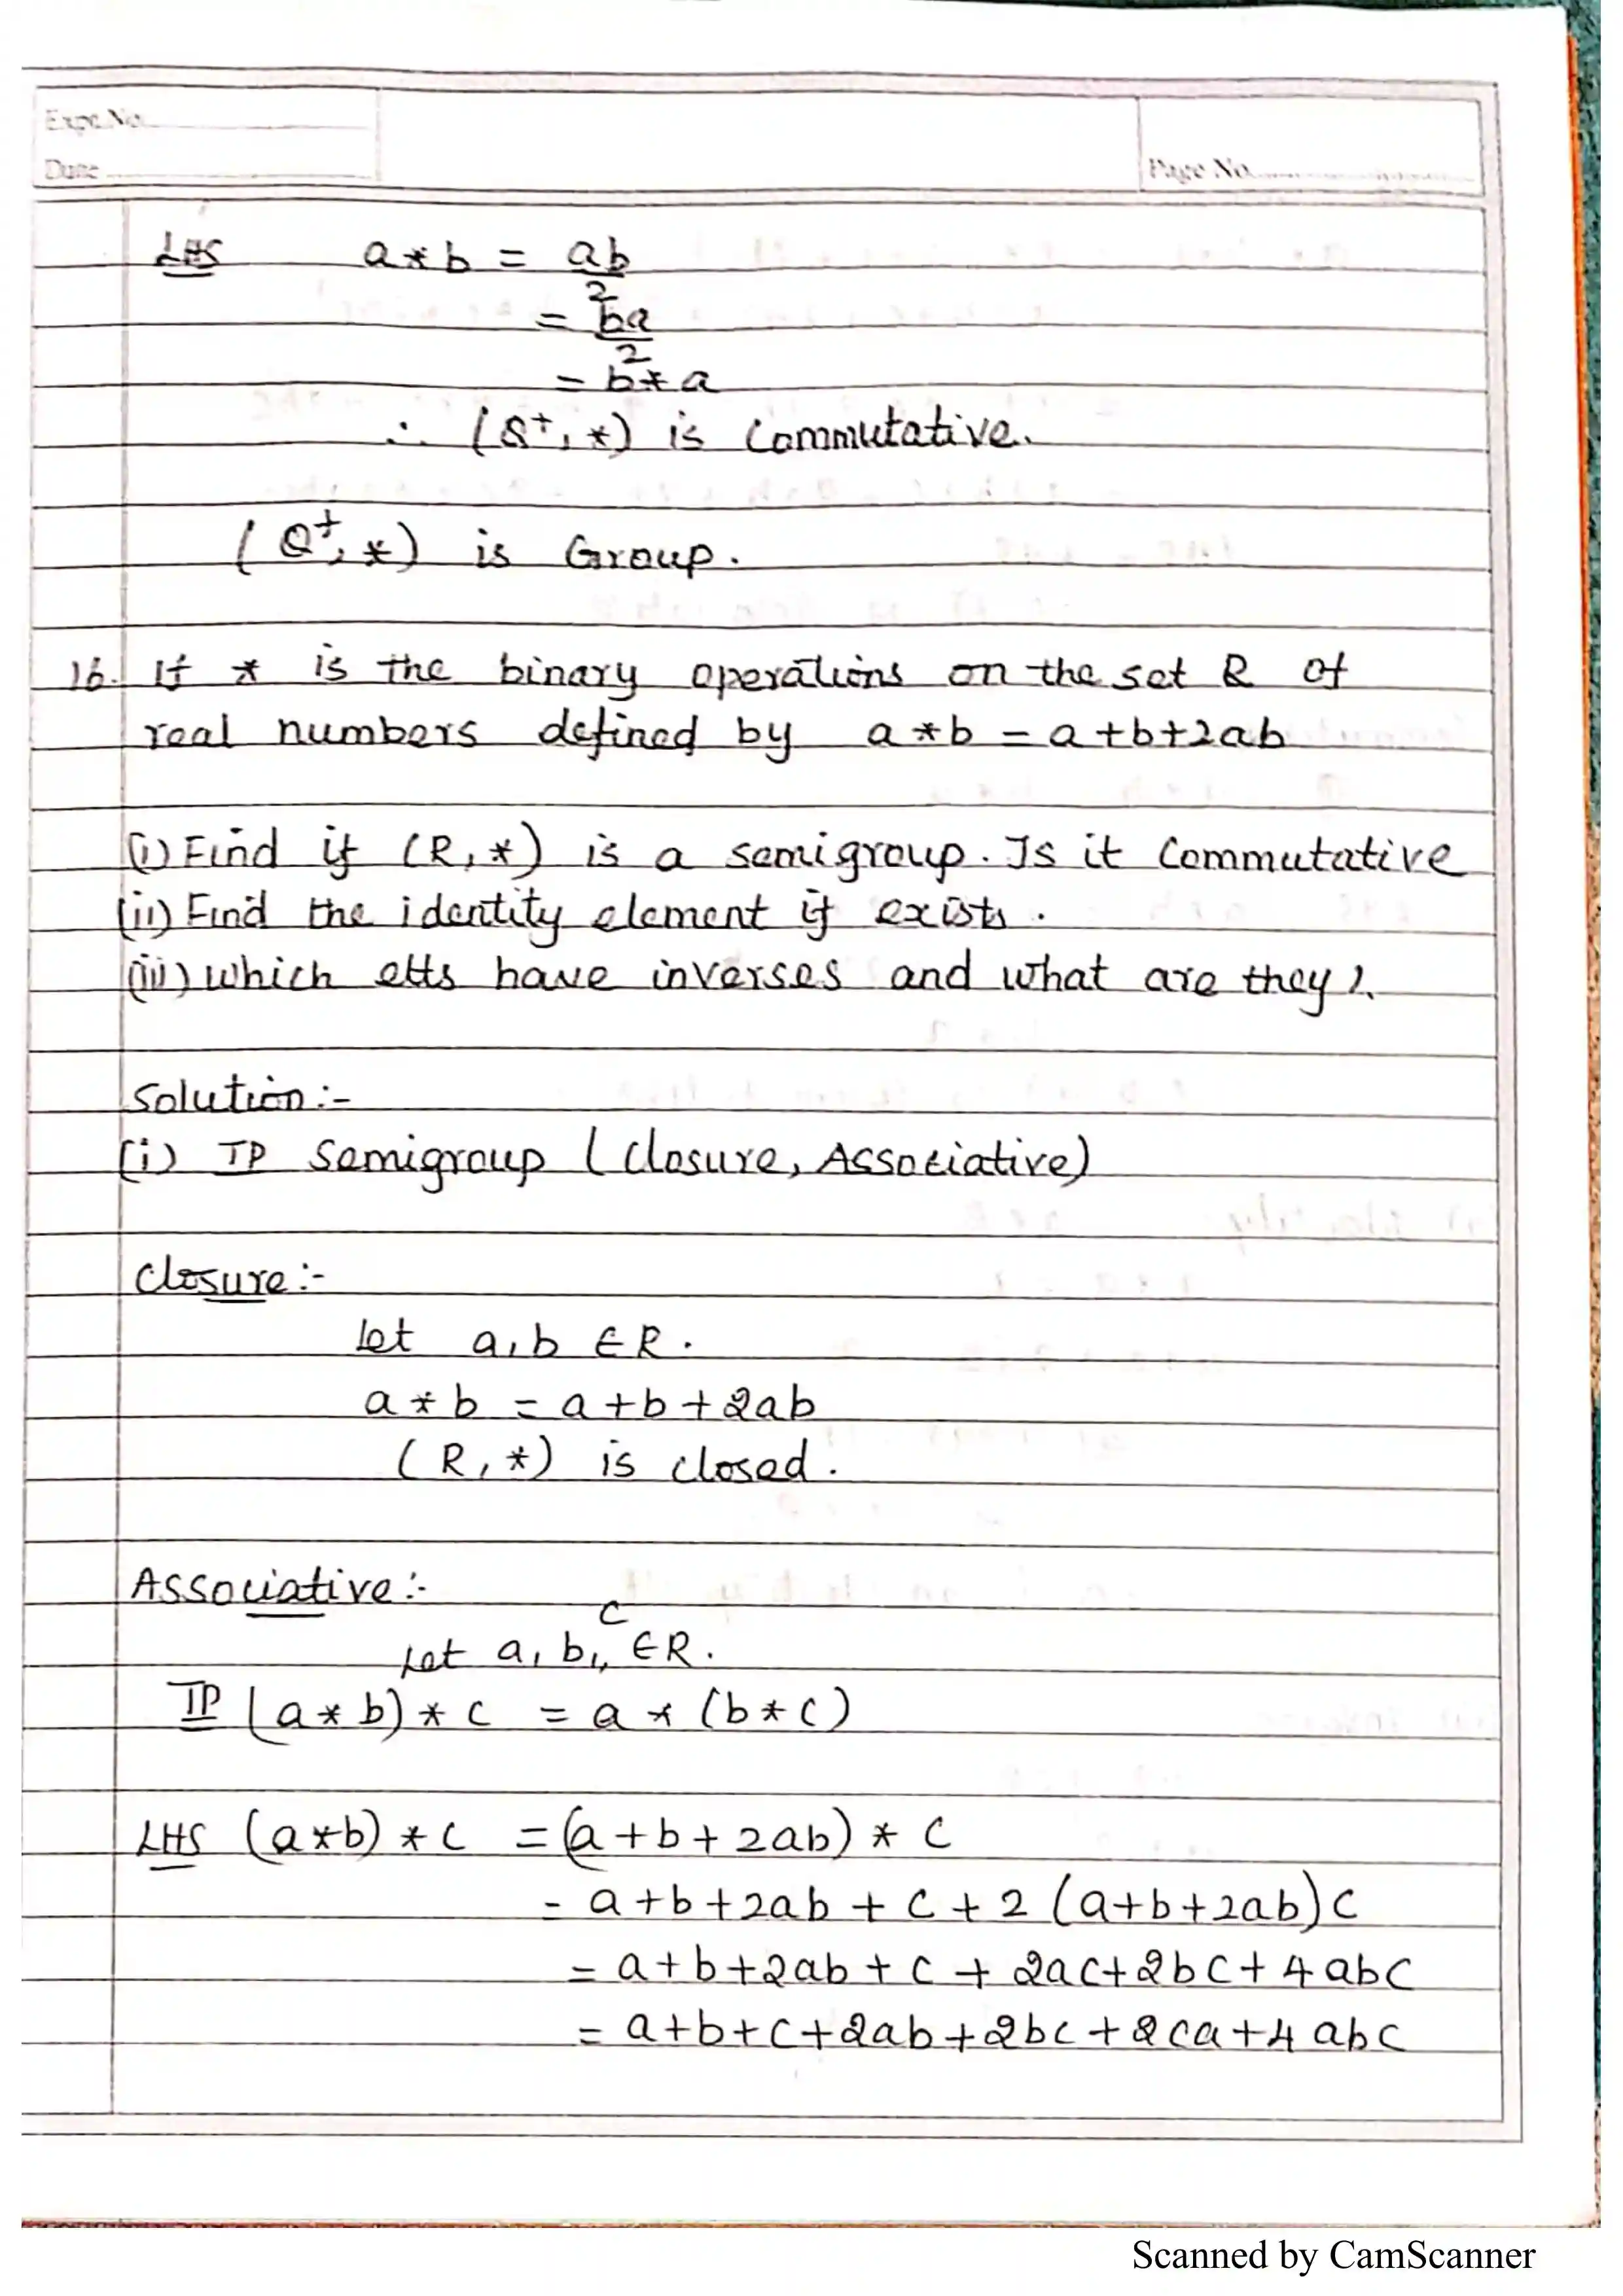 Expt. No.
Date
Page No.
LHS a * b = ab/2
= ba/2
= b * a
∴ (Q⁺, *) is Commutative.
(Q⁺, *) is Group.
16. If * is the binary operations on the set R of
real numbers defined by a * b = a + b + 2ab
(i) Find if (R, *) is a semigroup. Is it Commutative
(ii) Find the identity element if exists.
(iii) which elts have inverses and what are they?
Solution :-
(i) TP Semigroup (Closure, Associative)
Closure :-
Let a, b ∈ R.
a * b = a + b + 2ab
(R, *) is closed.
Associative :-
Let a, b, c ∈ R.
TP (a * b) * c = a * (b * c)
LHS (a * b) * c = (a + b + 2ab) * c
= a + b + 2ab + c + 2 (a + b + 2ab) c
= a + b + 2ab + c + 2ac + 2bc + 4abc
= a + b + c + 2ab + 2bc + 2ca + 4abc
Scanned by CamScanner